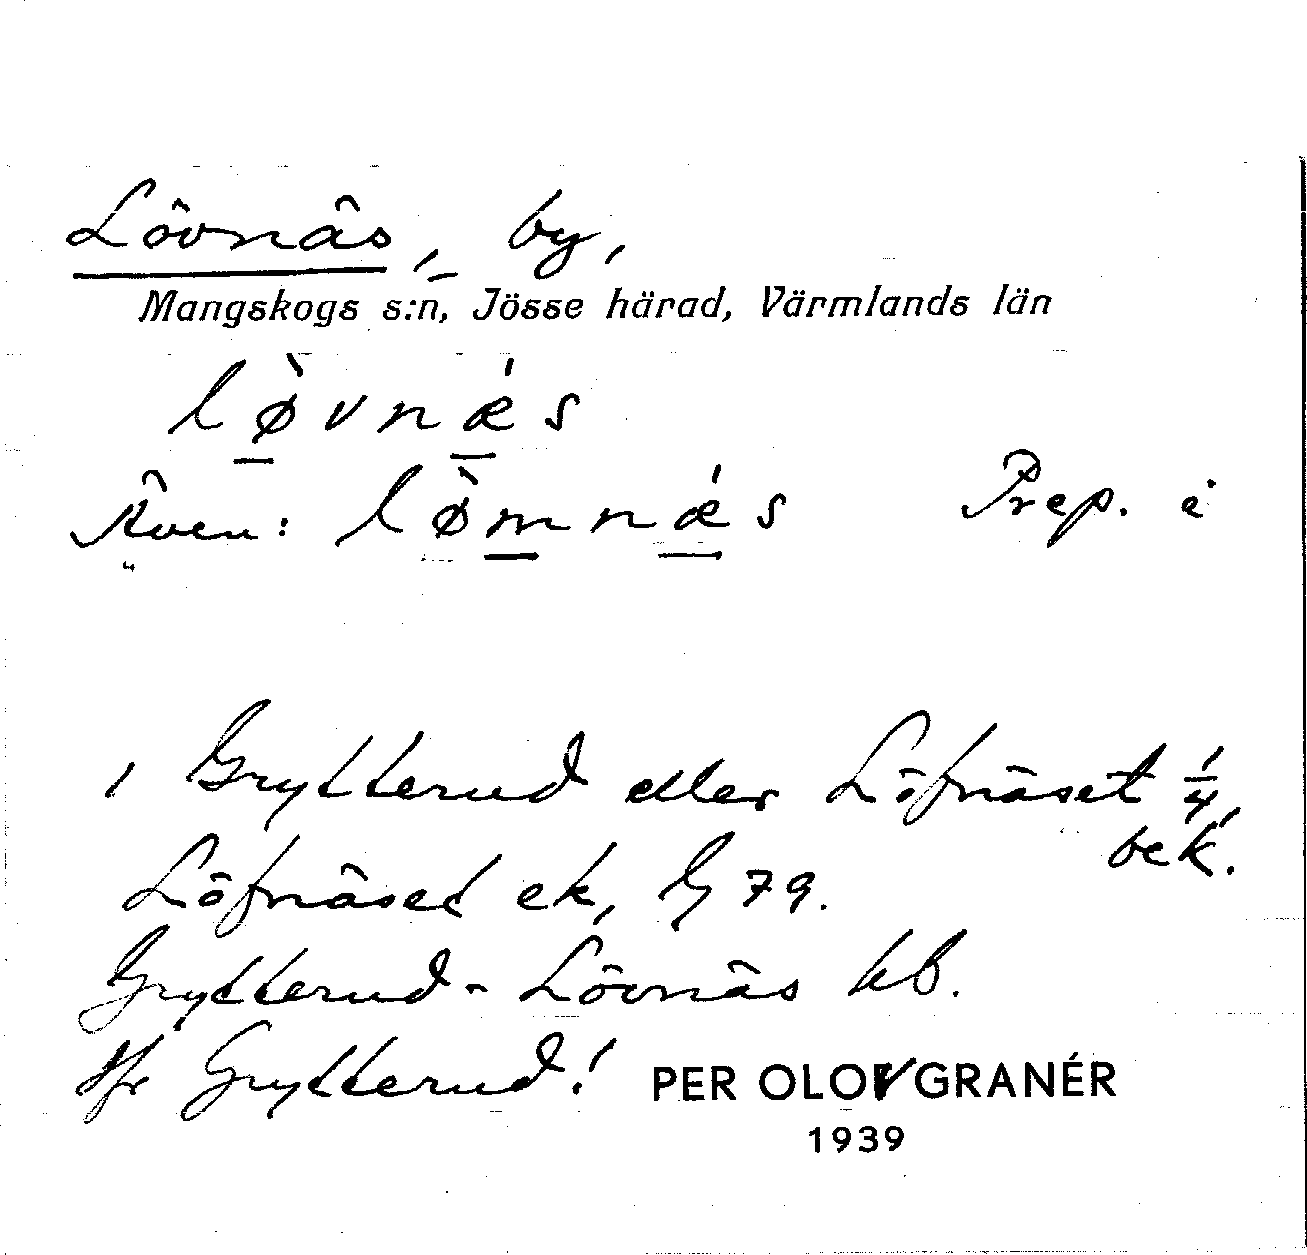 Lövnäs, by,
Mangskogs s:n, Jösse härad, Värmlands län
lø̀vnǽs
Även: lø̀mnǽs Prep. i
1 Grytterud eller Löfnäset 1/4,
bek.
Löfnäset ek, G 79.
Grytterud-Lövnäs kb.
Jfr Grytterud!
PER OLOV GRANÉR
1939